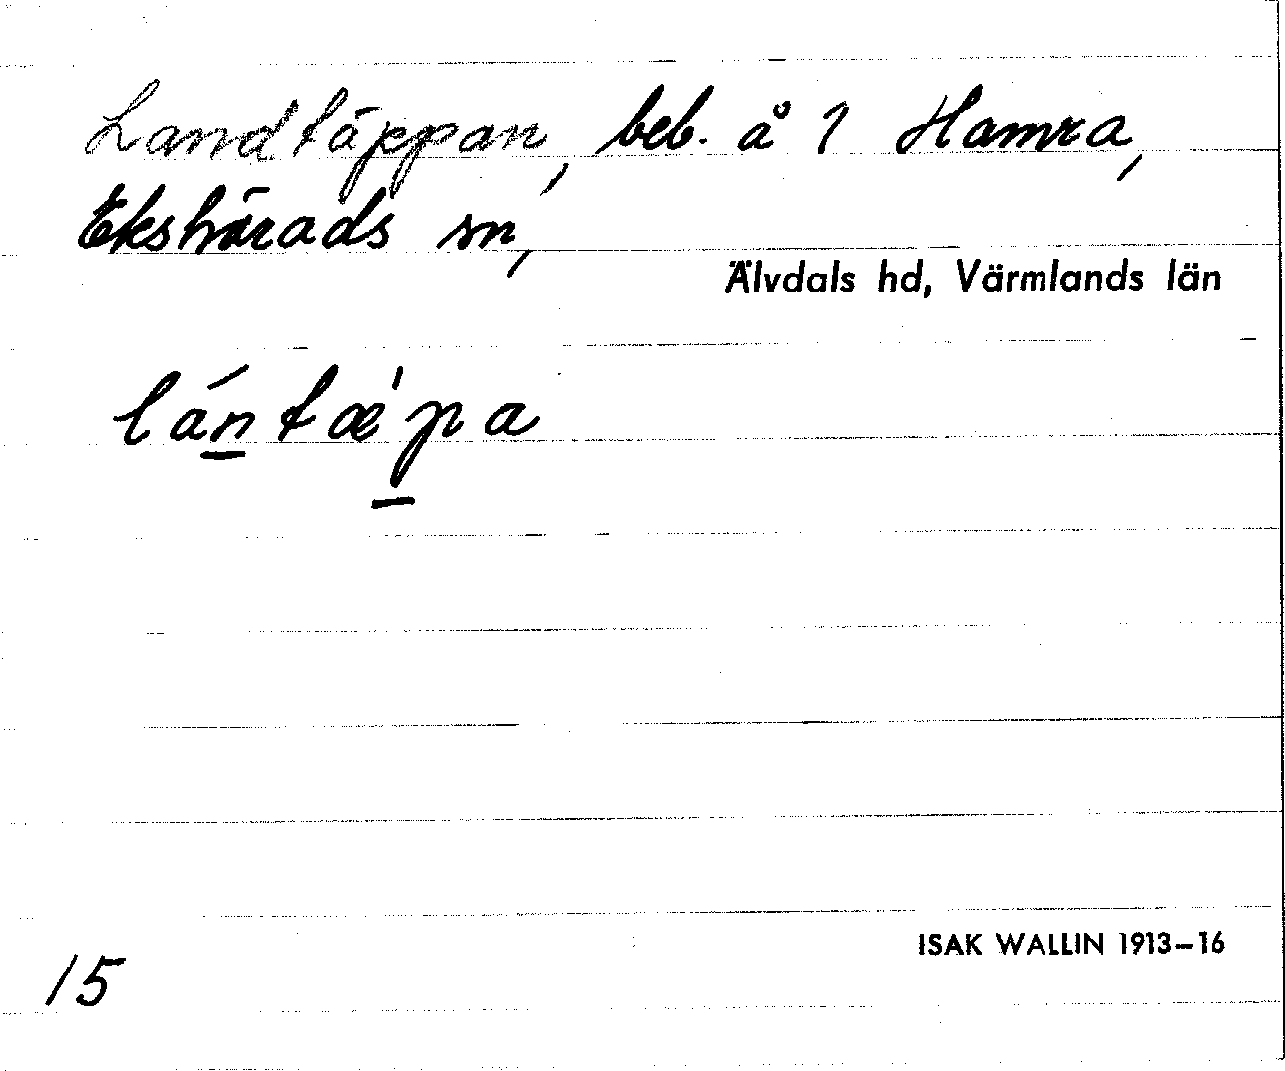 Landtäppan, beb. å 1 Hamra,
Ekshärads sn,
Älvdals hd, Värmlands län
lántæ̍pa
ISAK WALLIN 1913–16
15